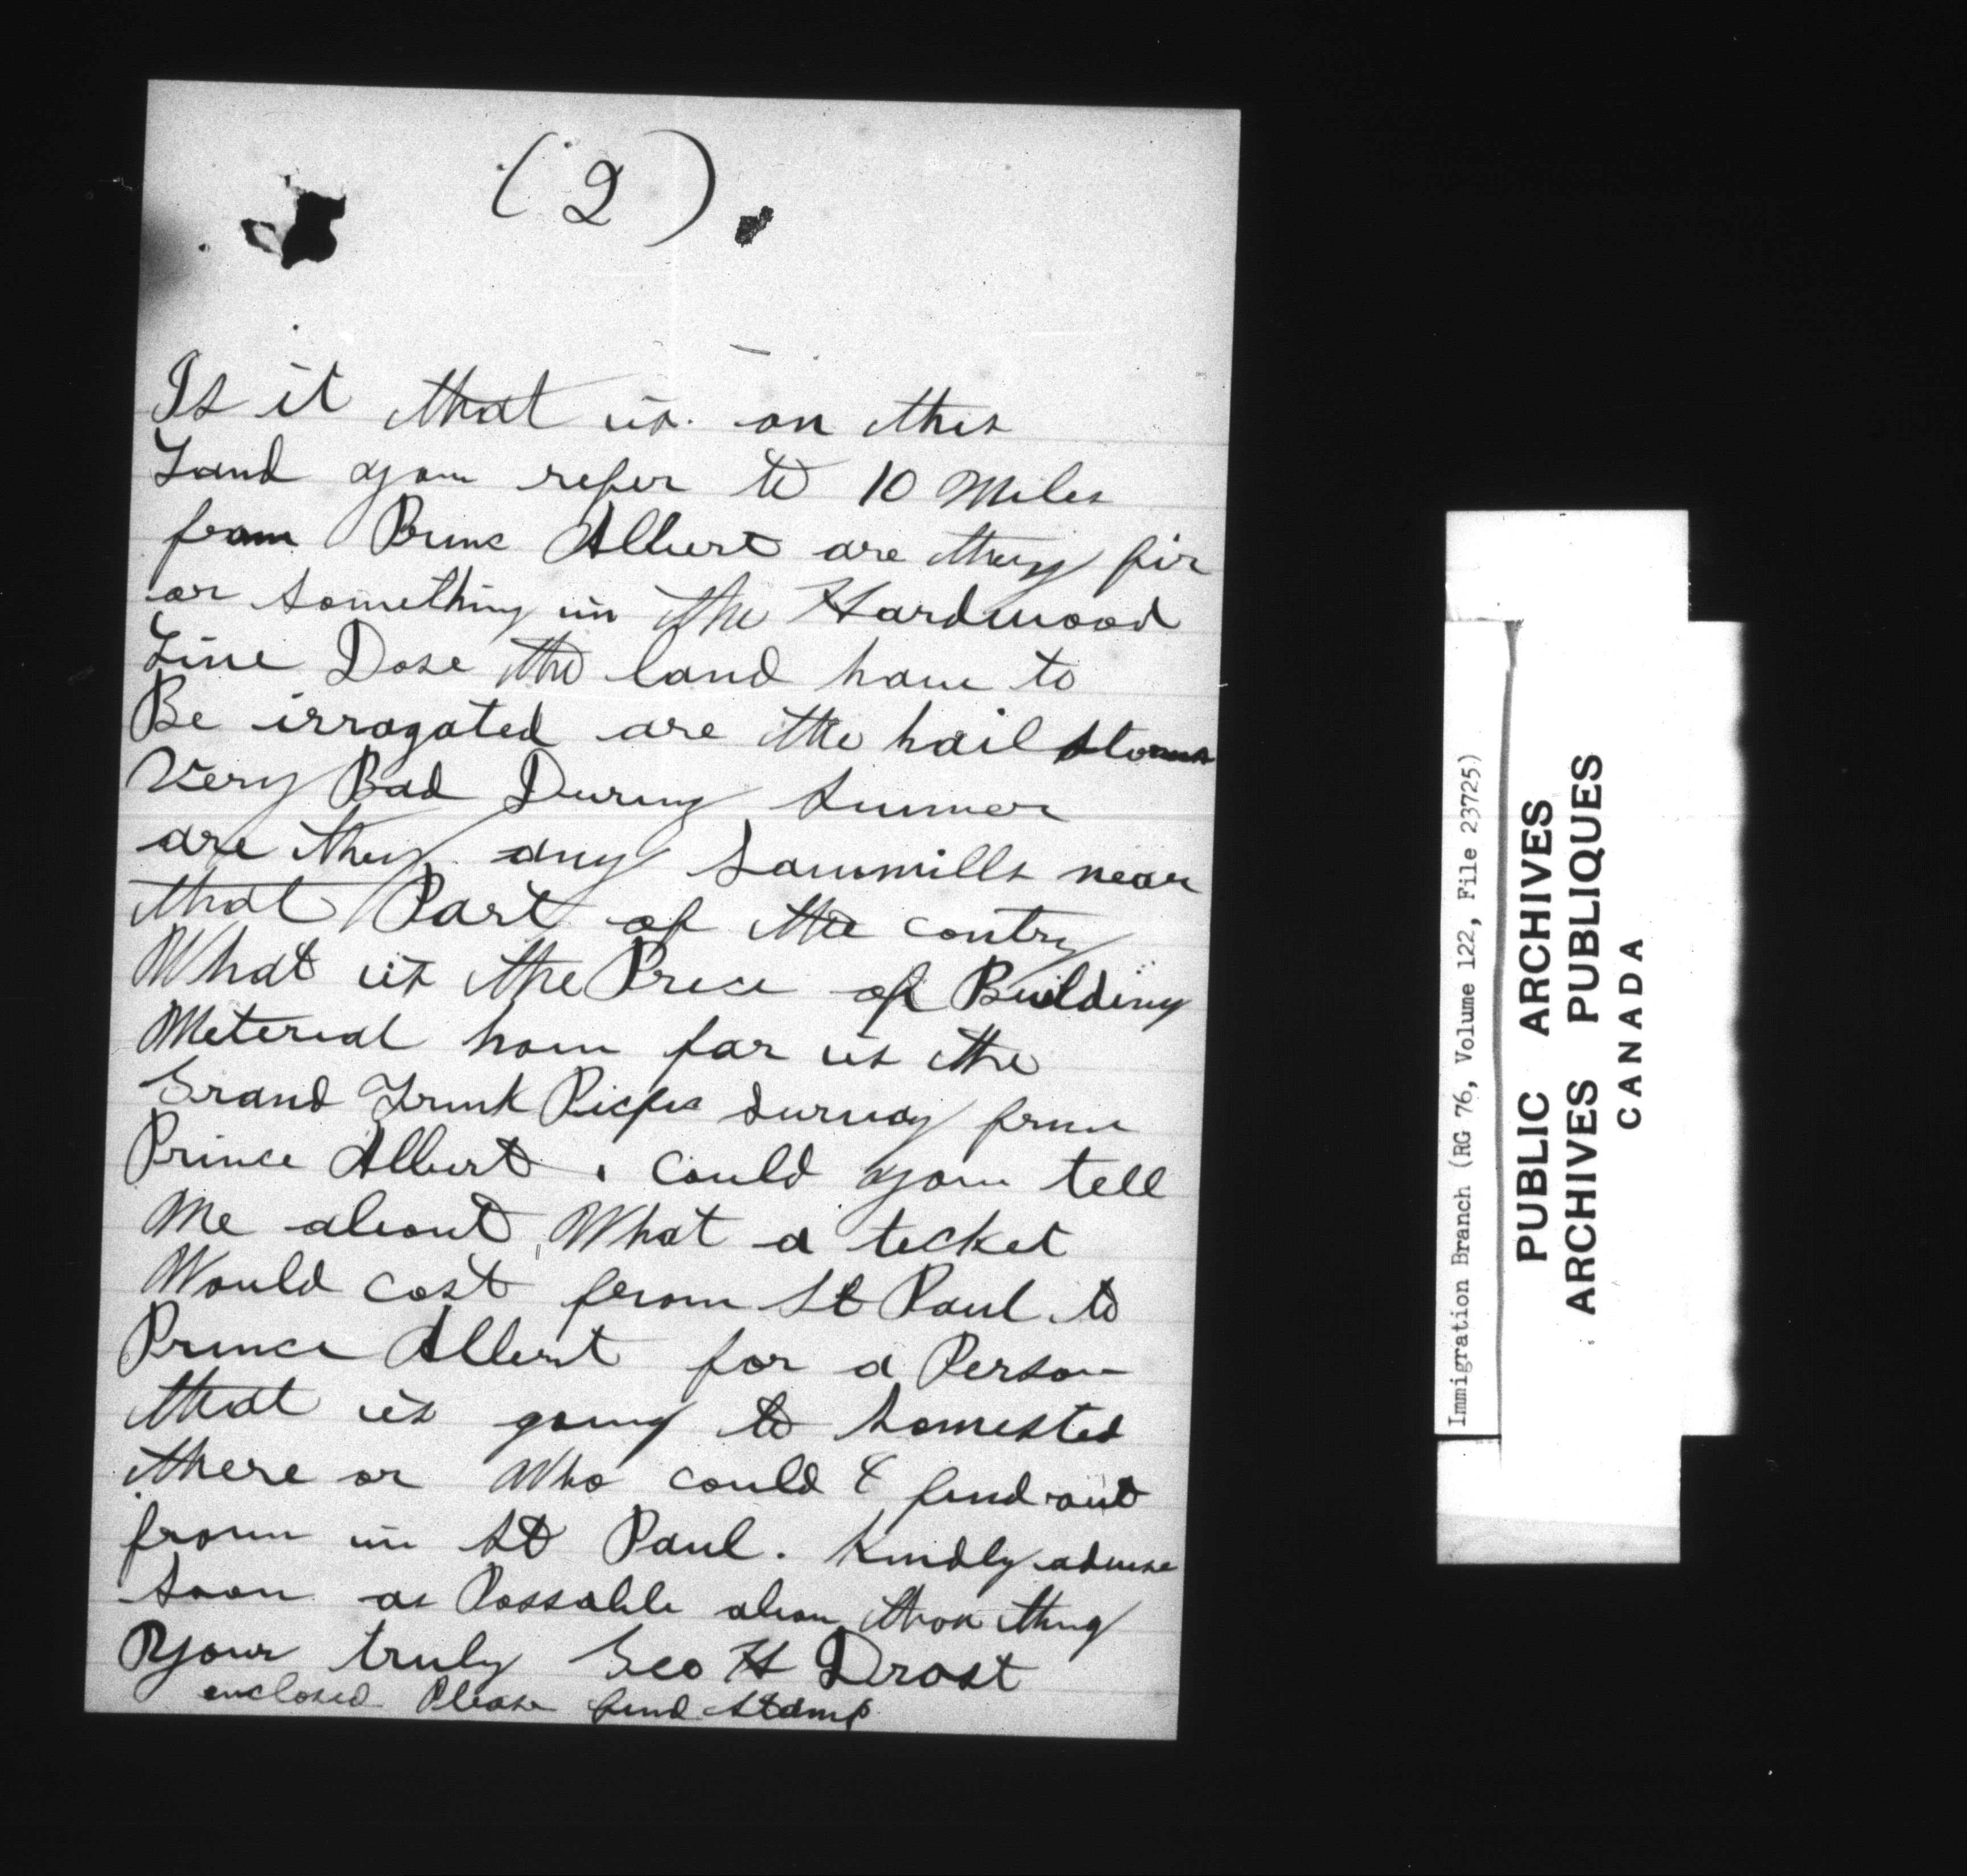 (2)
Is it that is on this
Land you refer to 10 Miles
from Princ Albert are they fir
or something in the Hardwood
Line Dose the land have to
Be irragated are the hail storms
Very Bad During Summer
are they any Sawmills near
that Part of the contry
What is the Price of Building
Meterial how far is the
Grand Trunk survay from
Prince Albert. Could you tell
Me about What a ticket
Would cost from St Paul to
Prince Albert for a Person
that is going to homested
there or Who could I find out
from in St Paul. Kindly advise
Soon as Possable thing
Your truly Geo H Drost
enclosed Please find stamp
Immigration Branch (RG 76, Volume 122, File 23725)
PUBLIC ARCHIVES
ARCHIVES PUBLIQUES
CANADA